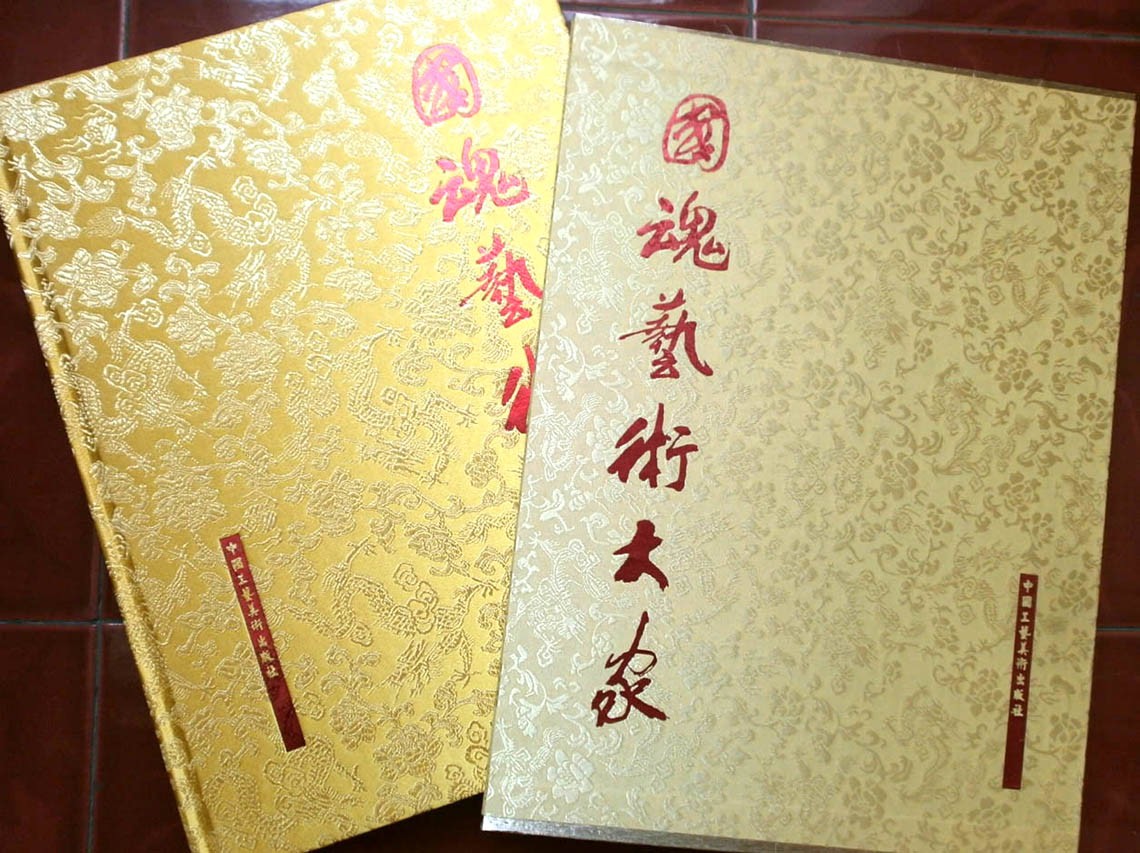 國魂藝術
中國工藝美術出版社
國魂藝術大家
中國工藝美術出版社